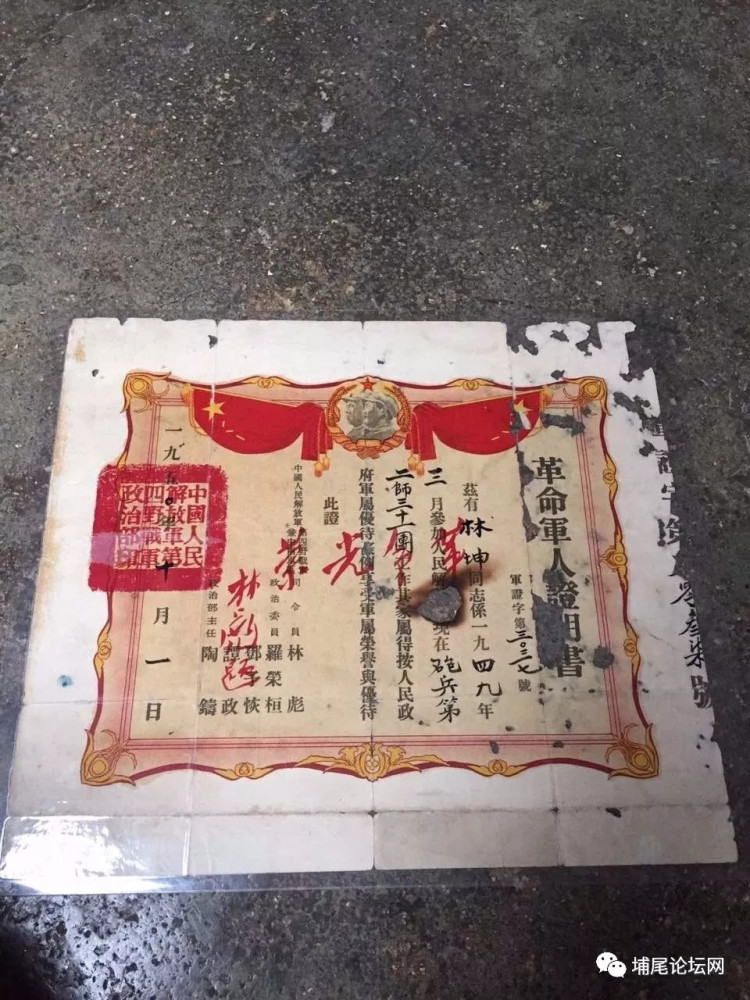 革命軍人證明書
軍證字第三〇三七號
茲有林坤同志係一九四九年
三月參加人民解 現在砲兵第
二師三十一團工作其家屬得按人民政
府軍屬優待條例享受軍屬榮譽與優待
此證
光榮
中國人民解放軍第四野戰軍
司令員林彪
政治委員羅榮桓
鄧子恢
譚政
政治部主任陶鑄
林彪題
中國人民
解放軍第
四野戰軍
政治部印
一九五〇年十月一日
零叁柒號
埔尾论坛网